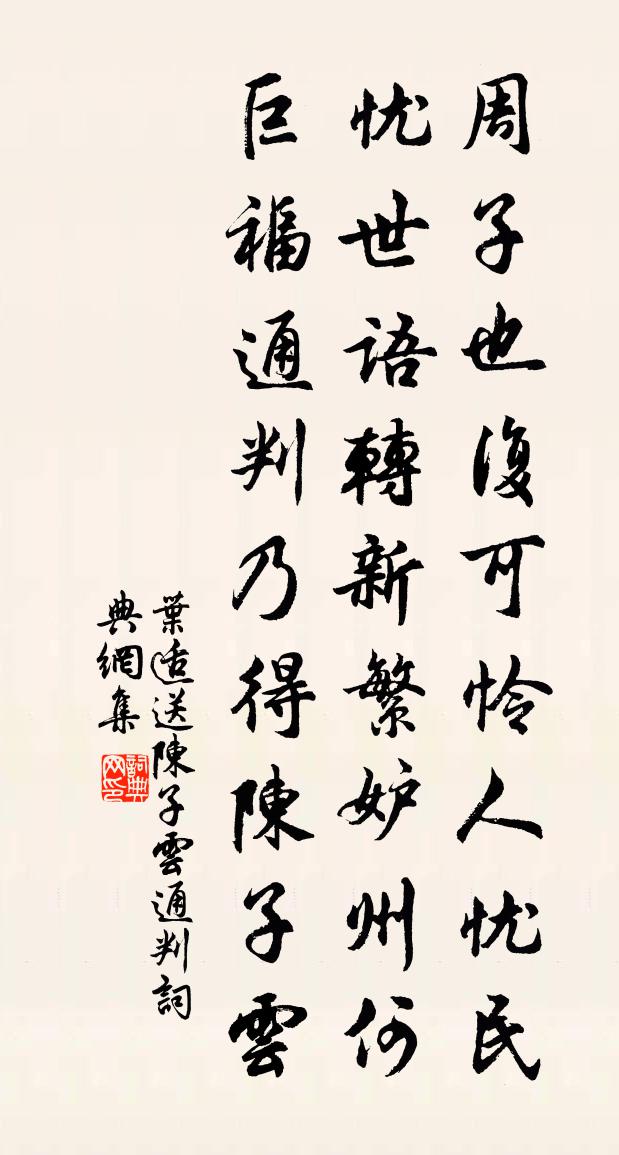 周子也復可怜人忧民
忧世語轉新繁妒州何
巨福通判乃得陳子雲
葉适送陳子雲通判詞
典網集
詞典网印